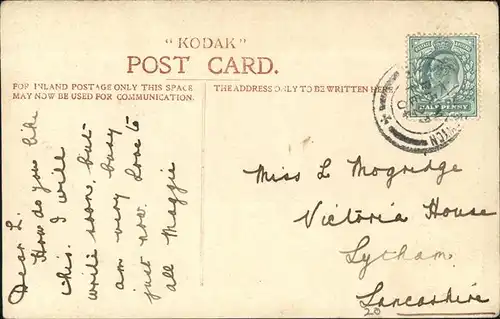 "KODAK"
POST CARD.
FOR INLAND POSTAGE ONLY THIS SPACE
MAY NOW BE USED FOR COMMUNICATION.
THE ADDRESS ONLY TO BE WRITTEN HERE
HALF PENNY
Dear L.
How do you like
this. I will
write soon, but
am very busy
just now. Love to
all Maggie
Miss L Mogridge
Victoria House
Lytham
Lancashire
20